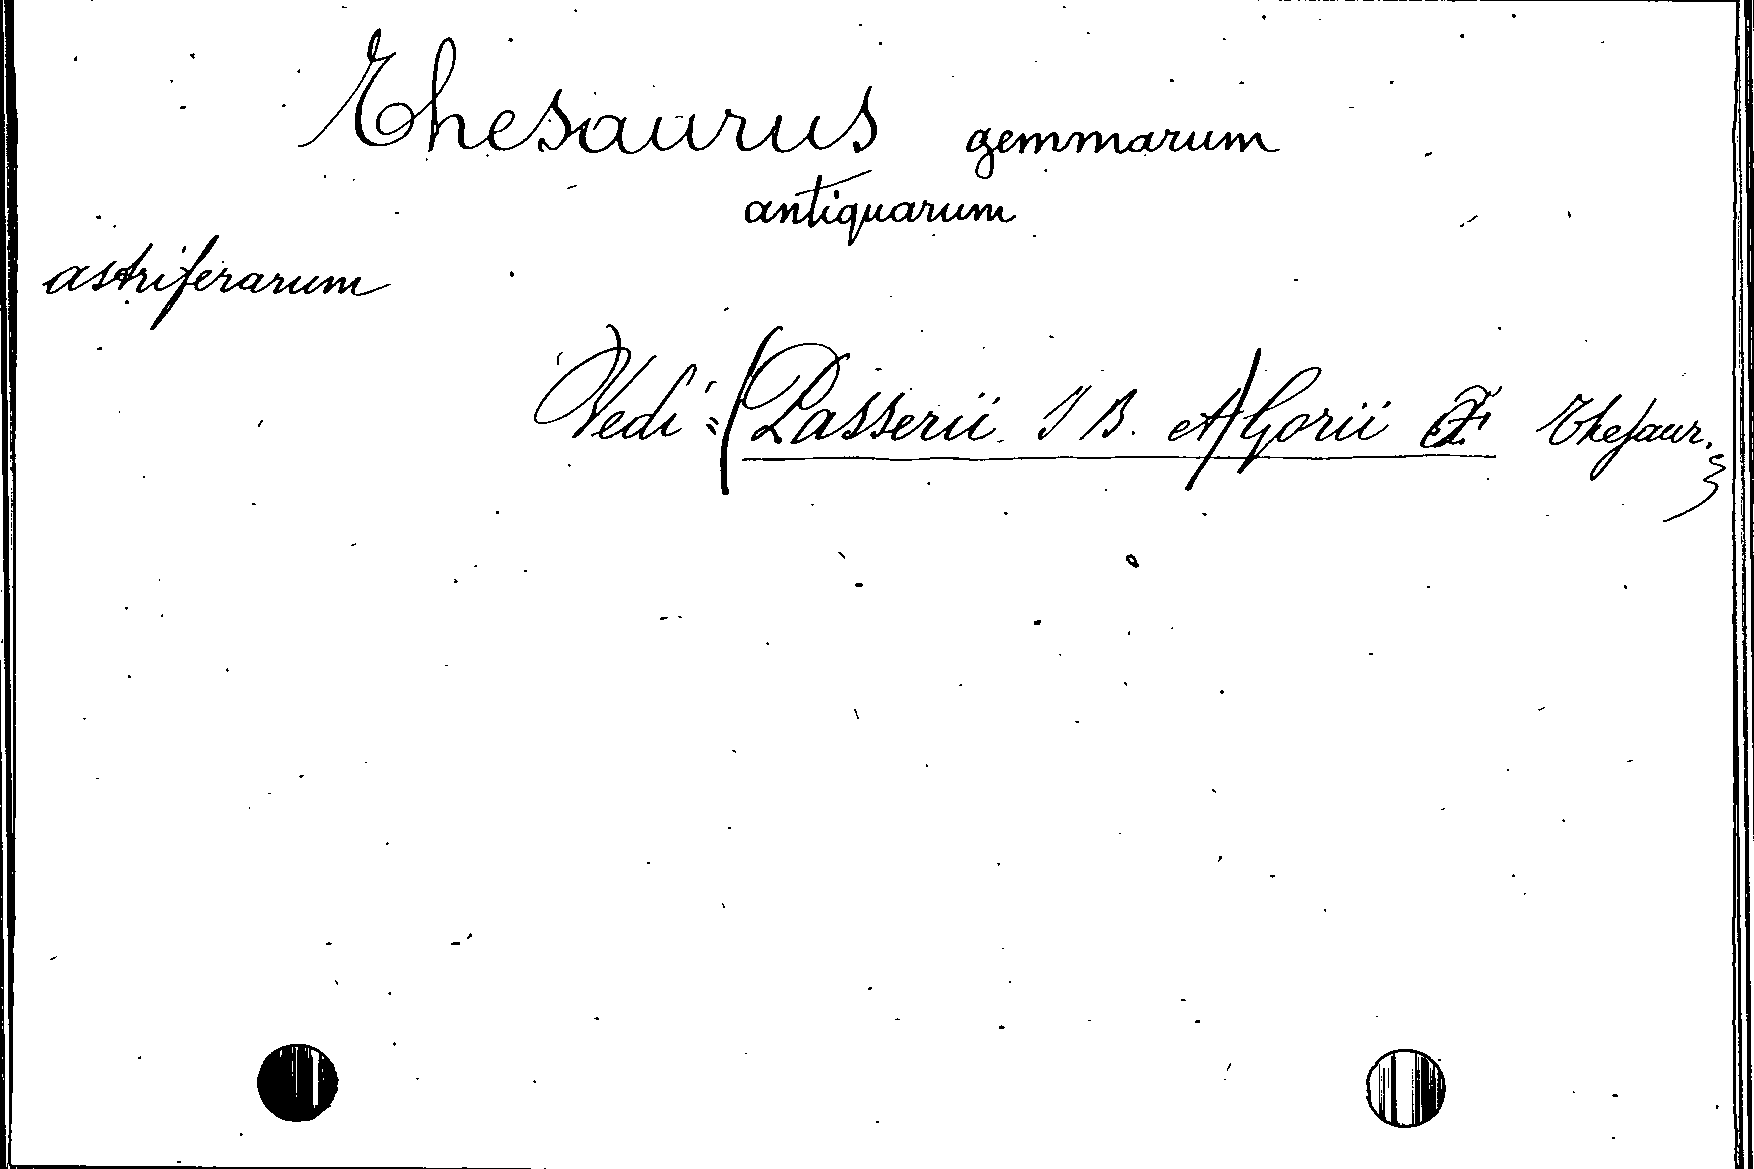 Thesaurus gemmarum
antiquarum
astriferarum
Vedi = (Passerii J B. et A) Gorii F Thesaur.